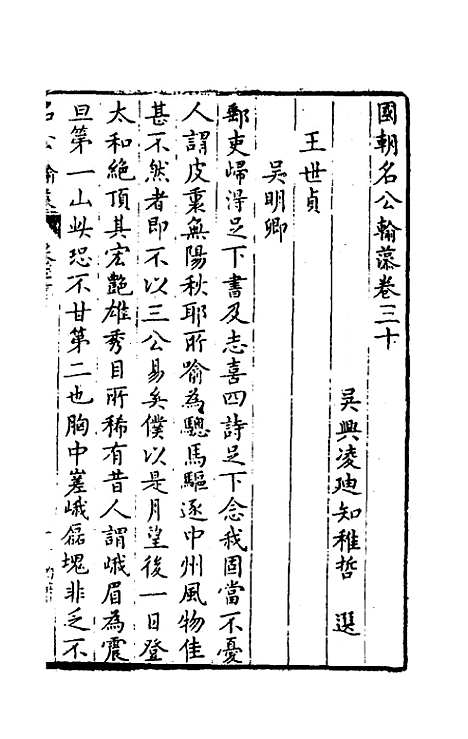 國朝名公翰藻卷三十
吳興凌迪知稚哲 選
王世貞
吳明卿
郵吏歸得足下書及志喜四詩足下念我固當不憂
人謂皮裏無陽秋耶所喻為驄馬驅逐中州風物佳
甚不然者即不以三公易矣僕以是月望後一日登
太和絶頂其宏艷雄秀目所稀有昔人謂峨眉為震
旦第一山此恐不甘第二也胸中嵳峨磊塊非乏不
名公翰藻